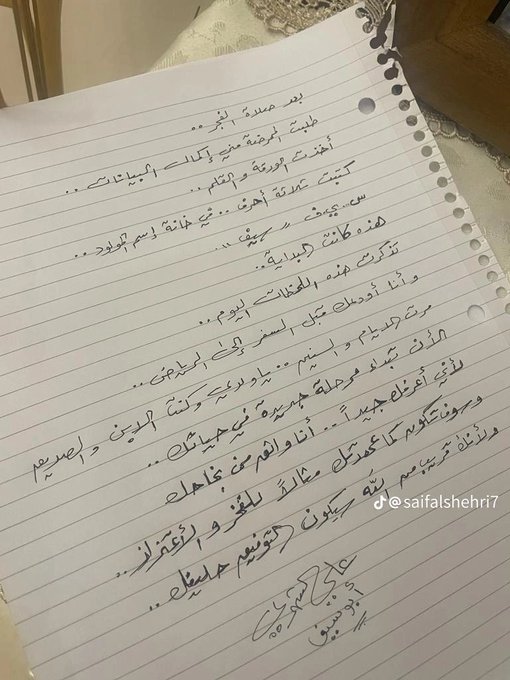 بعد صلاة الفجر ..
طلبت الممرضة مني إكمال البيانات ..
أخذت الورقة والقلم ..
كتبت ثلاثة أحرف .. في خانة إسم المولود ..
س ي ف ,, سيف ,,
هذه كانت البداية ..
تذكرت هذه اللحظات اليوم ..
وأنا أودعك قبل السفر إلى الرياض ..
مرت الأيام والسنين .. ياولدي وكنت الابن والصديق
الأن تبدأ مرحلة جديدة في حياتك ..
لأني أعرفك جيداً .. أنا واثق من نجاحك
وسوف تكون كما عهدتك مثالاً للفخر والأعتزاز ..
ولأنك قريب من الله سيكون التوفيق حليفك ..
علي الشهري
أبو سيف
@saifalshehri7